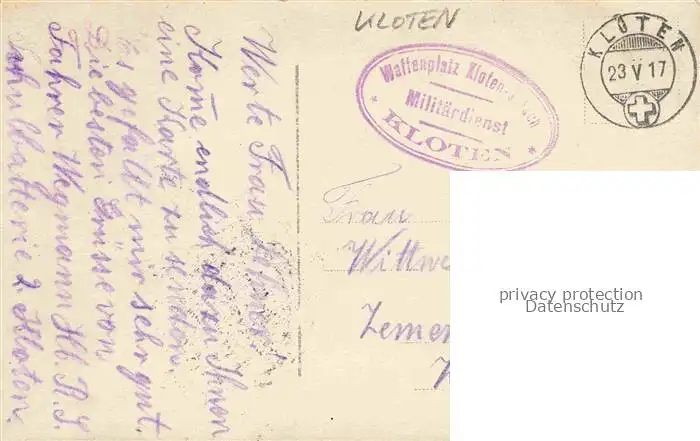 KLOTEN
Waffenplatz Kloten-
Militärdienst
KLOTEN
KLOTEN
23 V 17
Werte Frau
Kome endlich dazu Ihnen
eine Karte zu senden.
Es gefällt mir sehr gut.
Die besten Grüsse von
Fahrer Wegmann
batterie 2 Kloten.
Frau
Zemen
privacy protection
Datenschutz